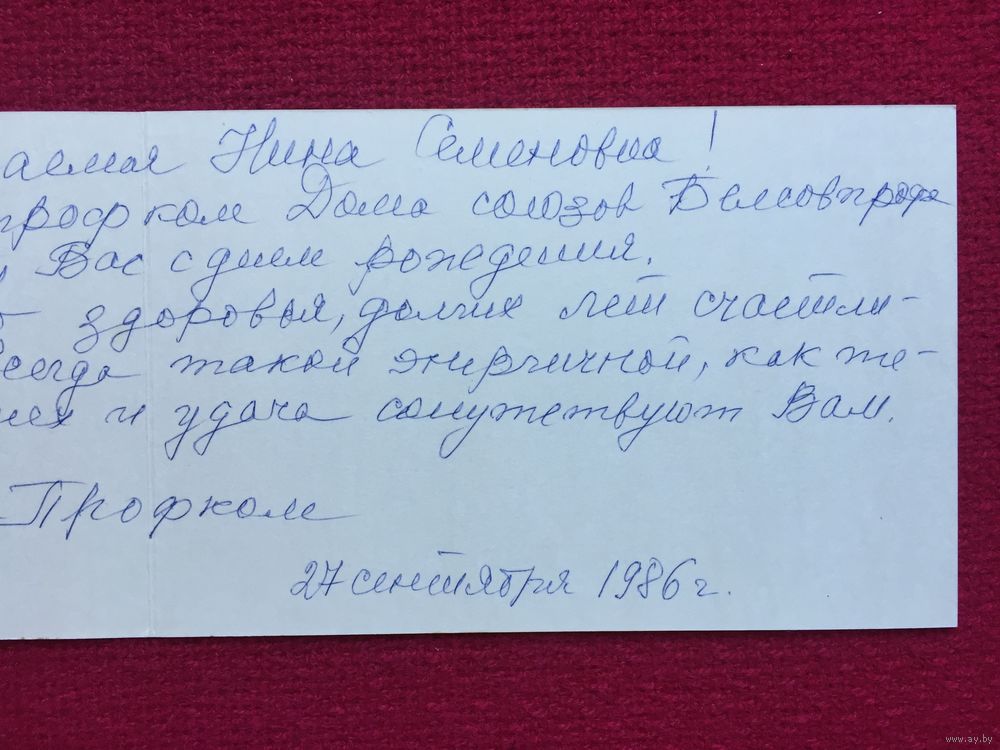 аемая Нина Семеновна!
профком Дома союзов Белсовпрофа
Вас с днем рождения.
здоровья, долгих лет счастли-
сегда такой энергичной, как те-
пех и удача сопутствуют Вам.
Профком
27 сентября 1986 г.
www.ay.by